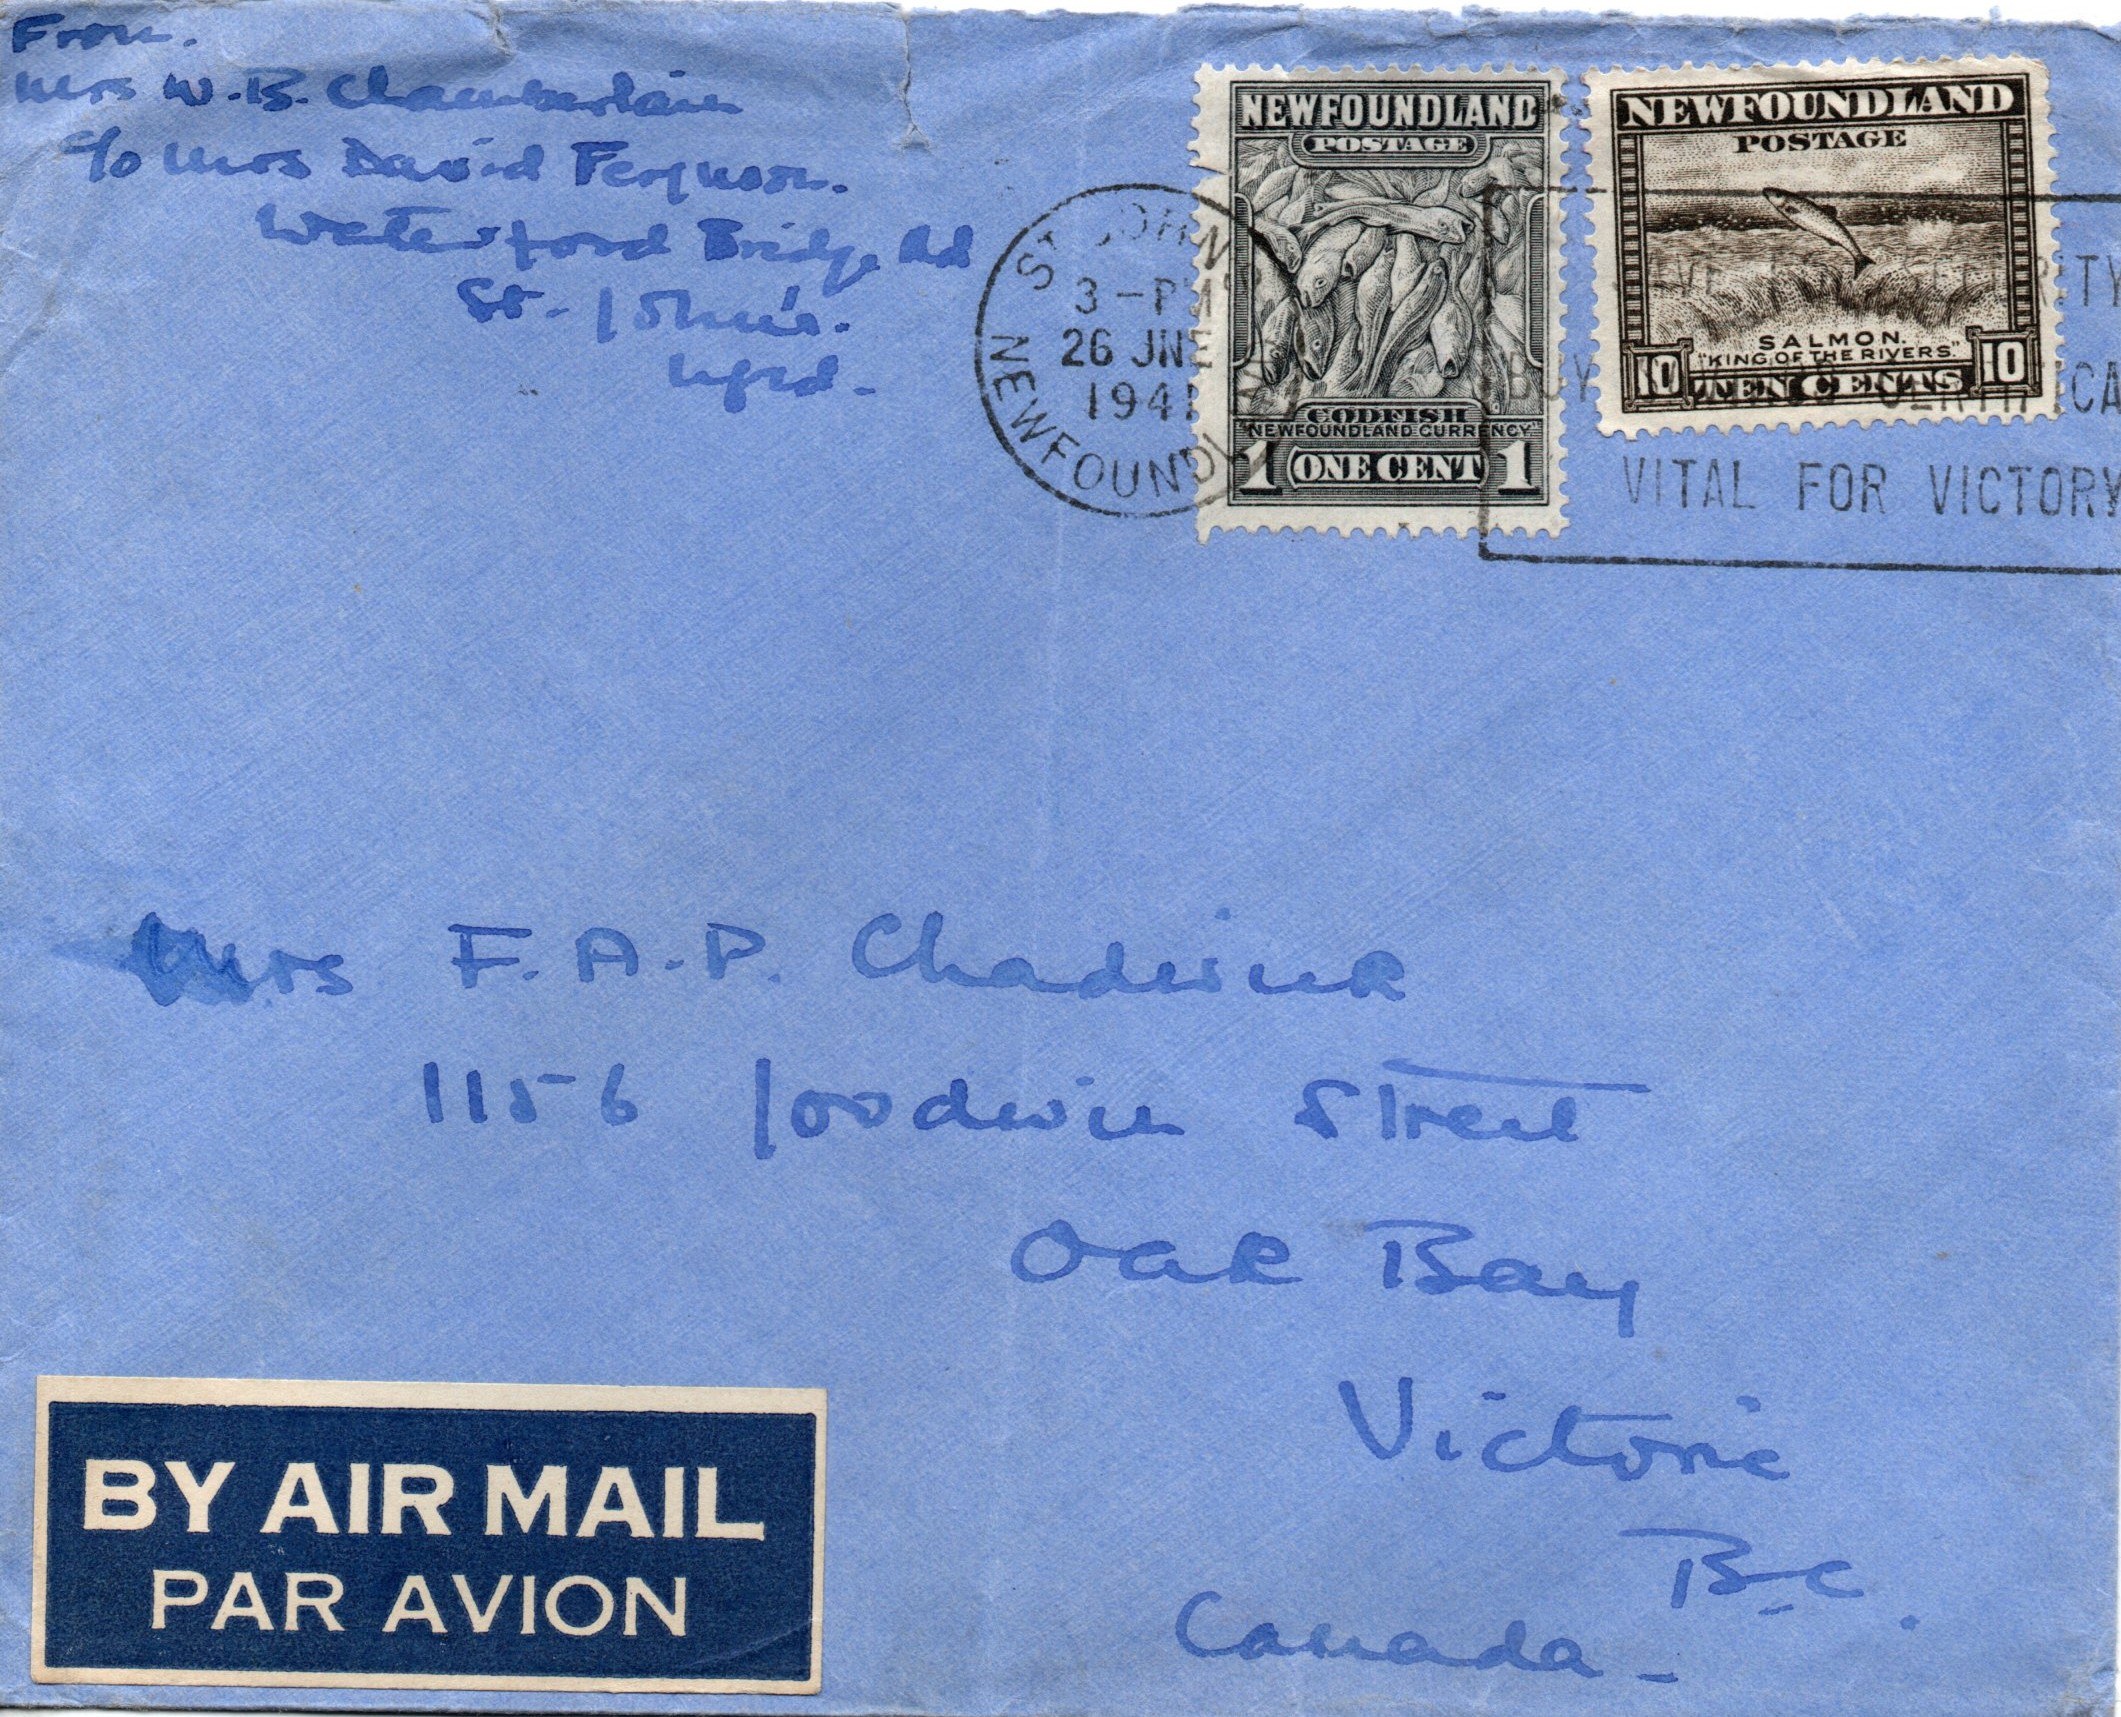 From.
Mrs W.B. Chamberlain
c/o Mrs David Ferguson.
Waterford Bridge Rd
St. John's.
Nfld.
NEWFOUNDLAND
POSTAGE
CODFISH
"NEWFOUNDLAND CURRENCY"
1 ONE CENT 1
NEWFOUNDLAND
POSTAGE
SALMON.
"KING OF THE RIVERS"
10 TEN CENTS 10
ST JOHN
3-PM
26 JNE
1941
NEWFOUNDL
BUY
VITAL FOR VICTORY
Mrs F.A.P. Chadwick
1156 Goodwin Street
Oak Bay
Victoria
B.C.
Canada
BY AIR MAIL
PAR AVION